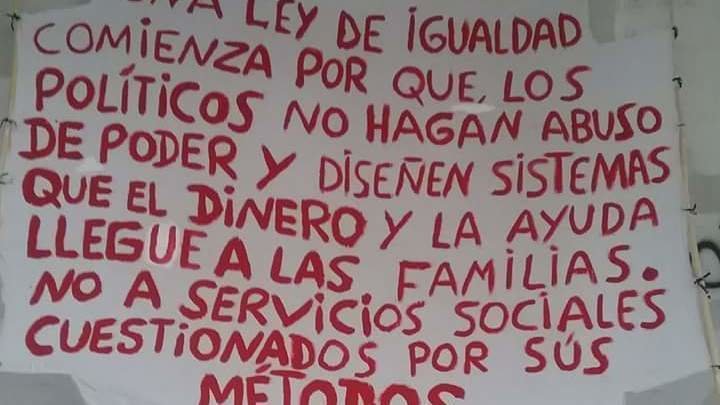 UNA LEY DE IGUALDAD
COMIENZA POR QUE, LOS
POLÍTICOS NO HAGAN ABUSO
DE PODER Y DISEÑEN SISTEMAS
QUE EL DINERO Y LA AYUDA
LLEGUE A LAS FAMILIAS.
NO A SERVICIOS SOCIALES
CUESTIONADOS POR SÚS
MÉTODOS